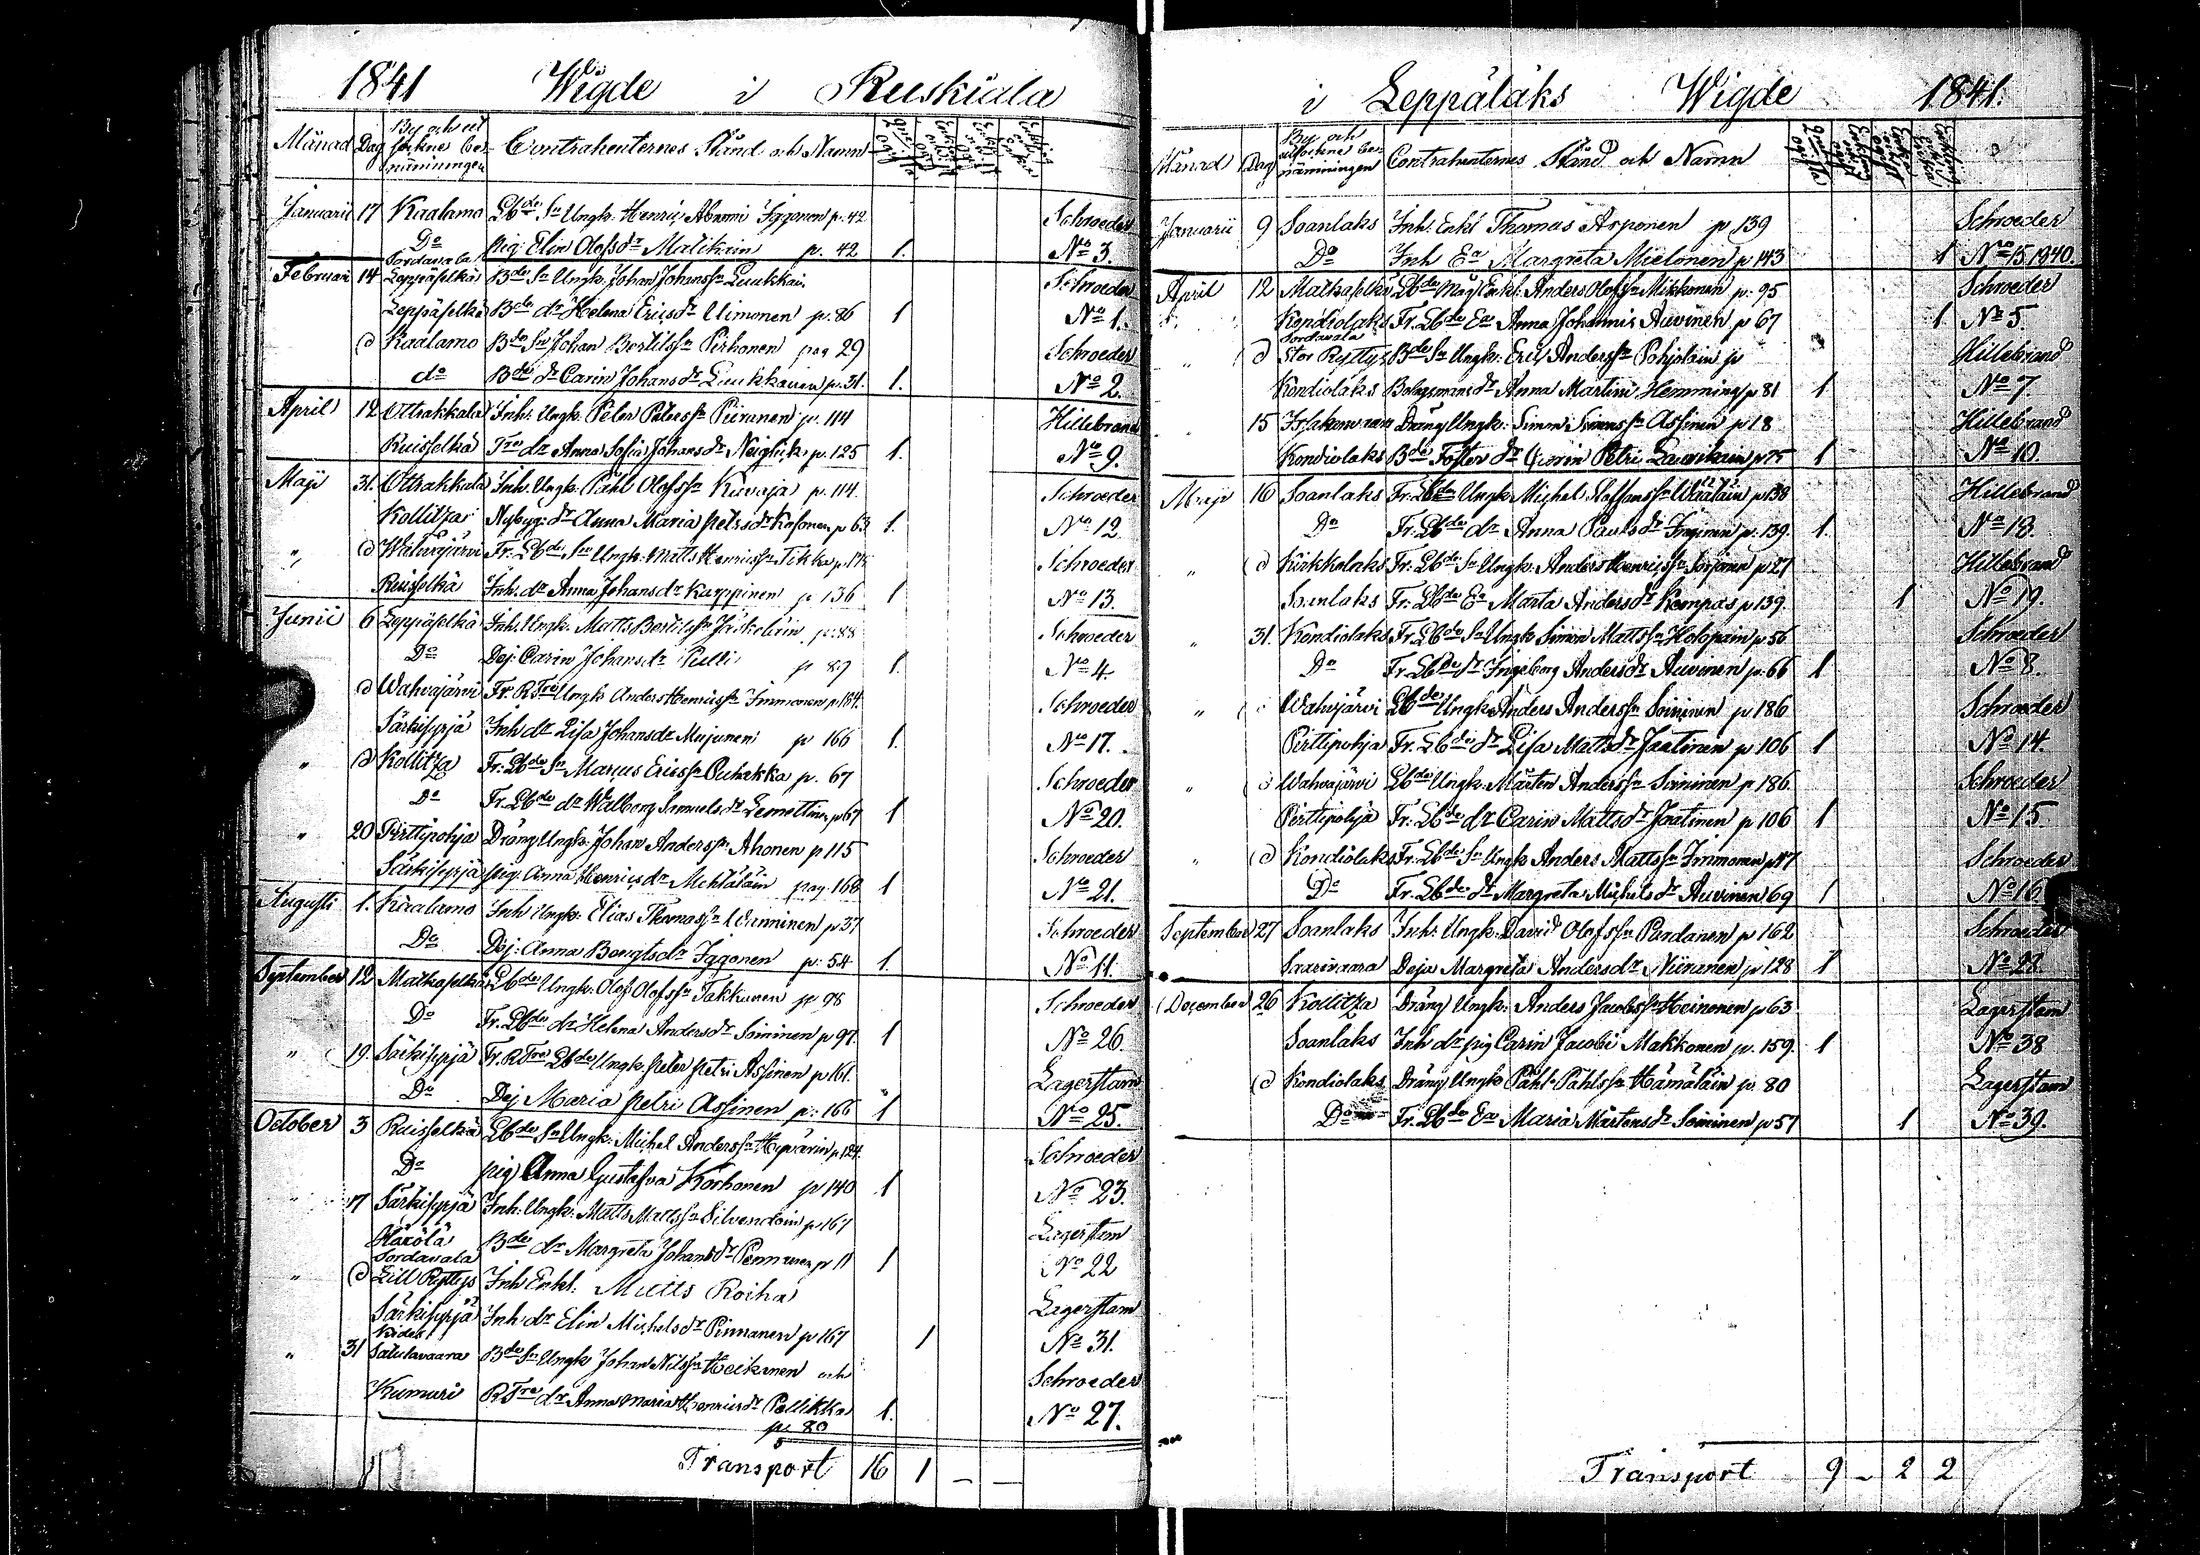 1841 Wigde i Ruskiala
Månad Dag By och sockne benämningen Contrahenternes Stånd och Namn
Januarii 17 Kaalamo Lbde Sn Ungk. Henric Abrami Iggonen p. 42 Schroeder
Do pig. Elin Olofsdr Matikain p. 42 1. No 3.
Sordavala
Februarii 14 Leppäselkä Bde Sn Ungk. Johan Johansson Luukkain Schroeder
Leppäselkä Bde dr Helena Ericsdr Uimonen p. 86 1 No 1.
d Kaalamo Bde Sn Johan Bertilsson Pirhonen pag 29 Schroeder
do Bde dr Carin Johansdr Luukkainen p. 31. 1. No 2.
April 12 Ottrakkala Inh. Ungk. Peter Peterssn Piironen p. 114 Hillebrand
Ruisselkä Tro dr Anna Sofia Johansdr Neiglick p. 125 1. No 9.
Maji 31. Ottrakkala Inh. Ungk. Påhl Olofssn Kuvaja p. 114. Schroeder
Kollitza Nybyg: dr Anna Maria Petersdr Kosonen p 63 1. No 12.
" d Wahvajärvi Fr. Lbde Sn Ungk. Matts Henricssn Tikka Schroeder
Ruisselkä Inh. dr Anna Johansdr Karppinen p 136 1 No 13.
Junii 6 Leppäselkä Inh. Ungk. Matts Bertilssn p. 88 Schroeder
Do Dej. Carin Johansdr Pulli p 87 1. No 4.
d Wahvajärvi Fr. Ungk Anders Henricssn Immonen p 184. Schroeder
Särkisyrjä Inh dr Lisa Johansdr Mujunen p 166 1. No 17.
" d Kollitza Fr. Lbde Sn Marcus Ericssn Puhakka p. 67 Schroeder
Do Fr. Lbde dr Walborg Samuelsdr Lemettinen p 67 1 No 20.
" 20 Pirttipohja Dräng Ungk. Johan Anderssn Ahonen p 115 Schroeder
Särkisyrjä pig. Anna Henricsdr pag. 168 1 No 21.
Augusti 1. Kaalamo Inh Ungk. Elias Thomassn p 37 Schroeder
Do Dej. Anna Bengtsdr Iggonen p. 54 1. No 11.
September 12 Matkaselkä Lbde Ungk. Olof Olofssn Takkunen p 98 Schroeder
Do Fr. Lbde dr Helena Andersdr Soininen p 97. 1 No 26.
" 19. Särkisyrjä Fr. Lbde Ungk. Peter Petri Assinen p 161. Lagerstam
Do Dej Maria Petri Assinen p. 166 1 No 25.
October 3 Ruisselkä Lbde Sn Ungk. Michel Anderssn p. 124. Schroeder
Do pig Anna Gustafva Korhonen p 140 1 No 23.
" 17 Särkisyrjä Inh. Ungk. Matts Mattssn Silvendoin p 167 Lagerstam
Harölä Bde dr Margreta Johansdr Pennanen p 11 1 No 22
Sordavala
" d Lill Ryttys Inh Enkl. Matts Roiha Lagerstam
Särkisyrjä Inh dr Elin Michelsdr Pinnanen p 167 1 No 31.
Kides
" 31 Satulavaara Bde Sn Ungk Johan Nilssn Heikunen och Schroeder
Kumuri dr Anna Maria Henricsdr Pellikka 1. No 27.
p. 80
Transport 16 1 – –
i Leppälaks Wigde 1841.
Månad Dag By och sockne benämningen Contrahenternes Stånd och Namn
Januarii 9 Soanlaks Inh. Enkl Thomas Arponen p 139 Schroeder
Do Inh Ea Margreta Mielonen p 143 1 No 15 1840.
April 12 Matkaselkä Lbde Måg Enkl. Anders Olofssn Mikkonen p. 95 Schroeder
Kondiolaks Fr. Lbde Ea Anna Johannis Auvinen p 67 1 No 5.
Sordavala
" d Stor Ryttys Bde Sn Ungk. Eric Anderssn Pohjolain p Hillebrand
Kondiolaks Bolagsmans dr Anna Martini Hemming p 81 1 No 7.
" 15 Dräng Ungk. Simon Simonssn Assinen p 18 Hillebrand
Kondiolaks Bde Foster dr Carin Petri Laurikain p 75 1 No 10.
Maji 16 Soanlaks Fr. Lbde Ungk Michel Staffanssn p 138 Hillebrand
Do Fr. Lbde dr Anna Paulsdr p. 139. 1. No 18.
" d Kirkkolaks Fr. Lbde Sn Ungk. Anders Henricssn Sorjonen p 27 Hillebrand
Soanlaks Fr. Lbde Ea Marta Andersdr Kempas p 139. 1 No 19.
" 31. Kondiolaks Fr. Lbde Sn Ungk Simon Mattssn Holopain p 56 Schroeder
Do Fr. Lbde dr Ingeborg Andersdr Auvinen p. 66 1 No 8.
" Wahvajärvi Lbde Ungk Anders Anderssn Soininen p 186 Schroeder
Pirttipohja Fr. Lbde dr Lisa Mattsdr Jaatinen p 106 1 No 14.
" Wahvajärvi Lbde Ungk. Mårten Anderssn Soininen p 186. Schroeder
Pirttipohja Fr. Lbde dr Carin Mattsdr Jaatinen p 106 1 No 15.
" d Kondiolaks Fr. Lbde Sn Ungk Anders Mattssn Immonen Schroeder
Do Fr. Lbde dr Margreta Michelsdr Auvinen 69 1 No 16
September 27 Soanlaks Inh. Ungk. David Olofssn Pardanen p 162 Schroeder
Saarivaara Deja Margreta Andersdr Niiranen p 128 1 No 28.
December 26 Kollitza Dräng Ungk. Anders Jacobssn Heinonen p 63 Lagerstam
Soanlaks Inh dr pig Carin Jacobi Makkonen p. 159. 1 No 38
d Kondiolaks Dräng Ungk Påhl Påhlssn Hämäläin p. 80 Lagerstam
Do Fr. Lbde Ea Maria Mårtensdr Soininen p 57 1 No 39.
Transport 9 – 2 2